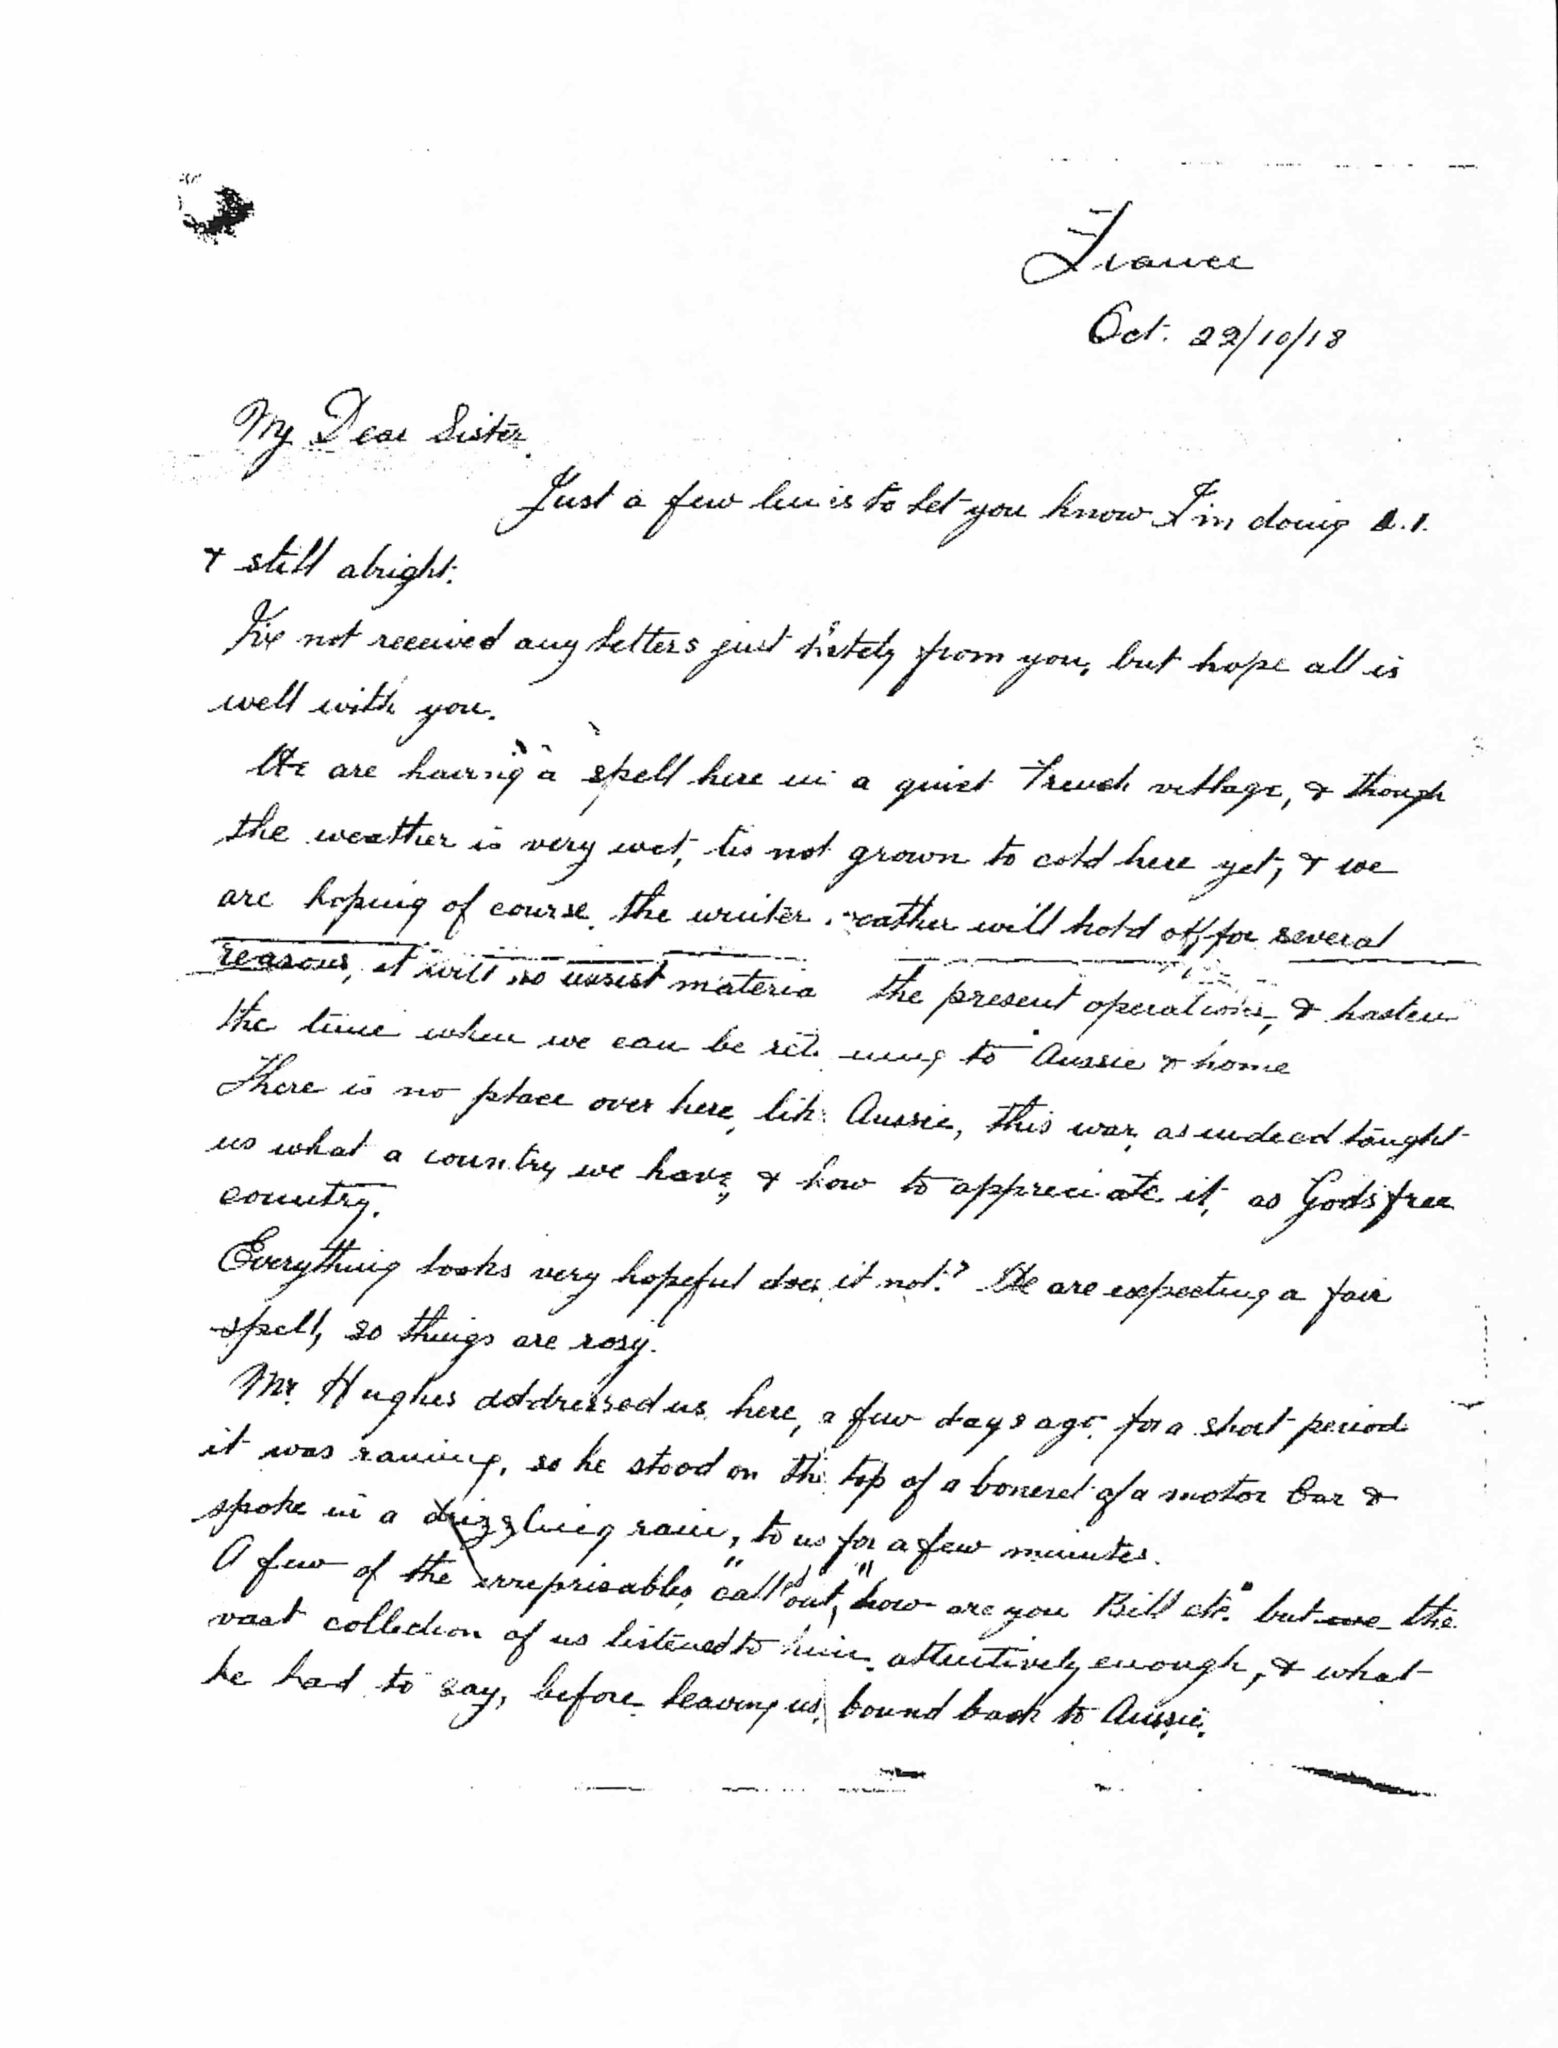 France
Oct. 22/10/18
My Dear Sister.
Just a few lines to let you know I'm doing A.1.
& still alright.
I've not received any letters just lately from you, but hope all is
well with you.
We are having a spell here in a quiet French village, & though
the weather is very wet, tis not grown to cold here yet, & we
are hoping of course the winter weather will hold off, for several
reasons, it will so assist materia the present operations, & hasten
the time when we can be returning to Aussie & home
There is no place over here, like Aussie, this war, as indeed taught
us what a country we have, & how to appreciate it, as Gods free
country.
Everything looks very hopeful does it not? We are expecting a fair
spell, so things are rosy.
Mr. Hughes addressed us here, a few days ago, for a short period
it was raining, so he stood on the top of a bonnet of a motor car &
spoke in a drizzling rain, to us for a few minutes.
A few of the irreprisables, "call out," "how are you Bill etc." but the
vast collection of us listened to him attentively enough, & what
he had to say, before leaving us, bound back to Aussie.